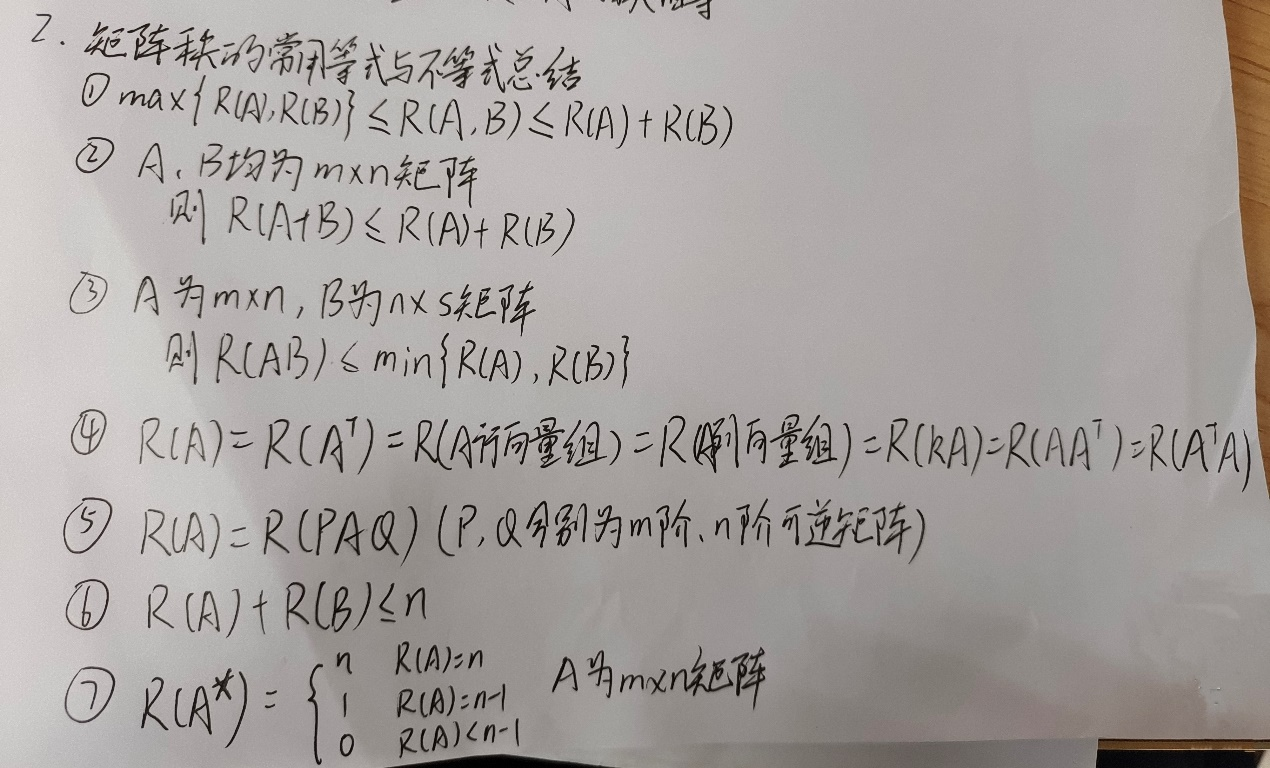 2. 矩阵秩的常用等式与不等式总结
① max{R(A),R(B)}≤R(A,B)≤R(A)+R(B)
② A、B均为m×n矩阵
则 R(A+B)≤R(A)+R(B)
③ A为m×n, B为n×s矩阵
则 R(AB)≤min{R(A),R(B)}
④ R(A)=R(Aᵀ)=R(A行向量组)=R(A列向量组)=R(kA)=R(AAᵀ)=R(AᵀA)
⑤ R(A)=R(PAQ) (P,Q分别为m阶、n阶可逆矩阵)
⑥ R(A)+R(B)≤n
⑦ R(A*)={ n R(A)=n
1 R(A)=n-1 A为m×n矩阵
0 R(A)<n-1